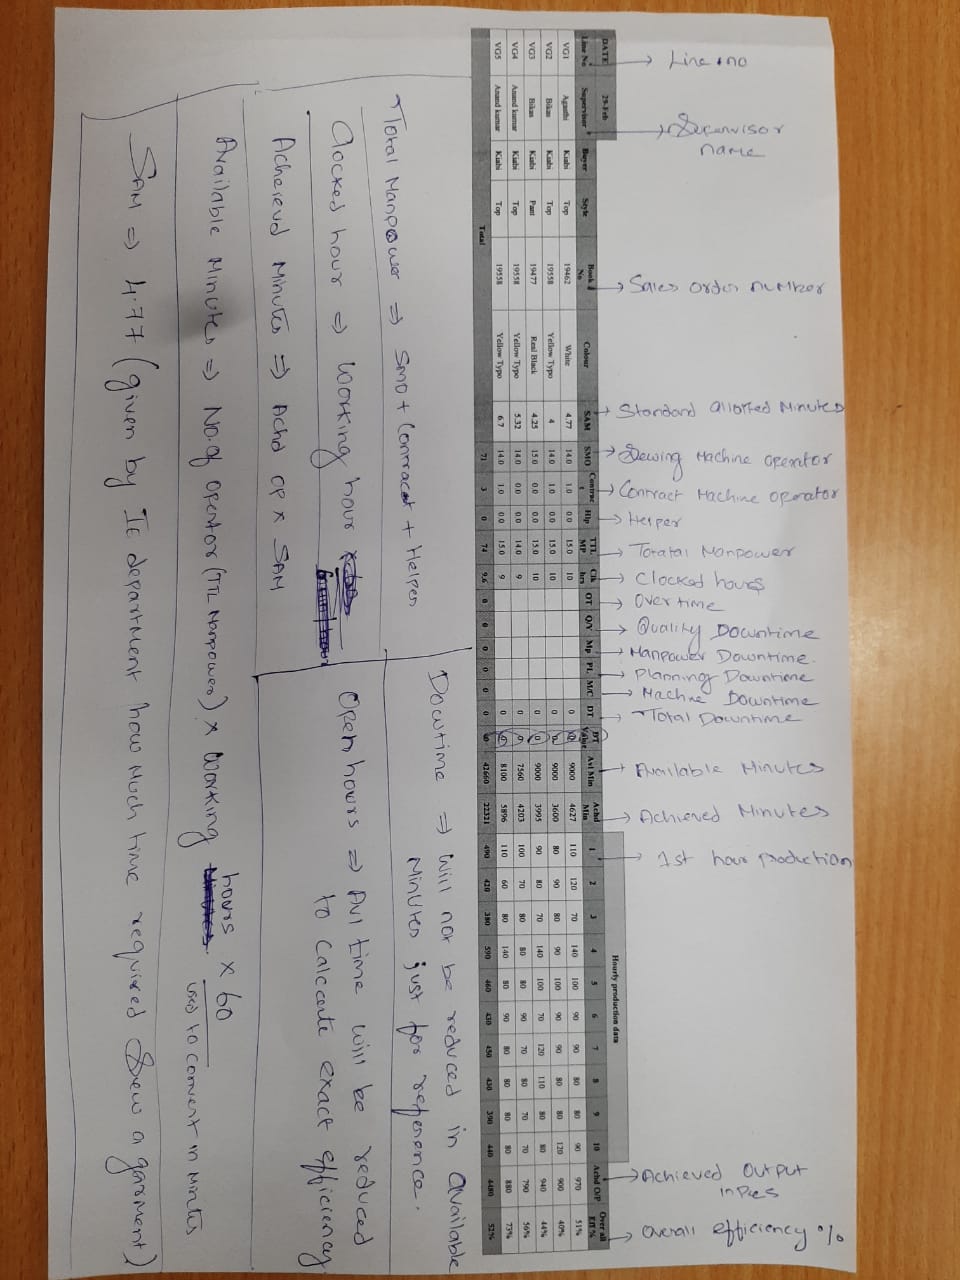 Line no
Supervisor
name
Sales order number
Standard allotted Minutes
Sewing Machine operator
Contract Machine operator
Helper
Totatal Manpower
Clocked hours
Over time
Quality Downtime
Manpower Downtime.
Planning Downtime
Machine Downtime
Total Downtime
Available Minutes
Achieved Minutes
1st hour production
Achieved Output
in Pcs
Overall efficiency %
DATE 29-Feb Hourly production data
Line No Supervisor Buyer Style Book No Colour SAM SMO Contrac t Hlp TTL MP Clk hrs OT Q/Y Mp PL M/C DT DT Value Avl Min Achd Min 1 2 3 4 5 6 7 8 9 10 Achd O/P Over all Eff %
VG1 Agasthi Kiabi Top 19462 White 4.77 14.0 1.0 0.0 15.0 10 0 0 9000 4627 110 120 70 140 100 90 90 80 80 90 970 51%
VG2 Bikas Kiabi Top 19558 Yellow Typo 4 14.0 1.0 0.0 15.0 10 0 0 9000 3600 80 90 80 90 100 90 90 80 80 120 900 40%
VG3 Bikas Kiabi Pant 19477 Real Black 4.25 15.0 0.0 0.0 15.0 10 0 0 9000 3995 90 80 70 140 100 70 120 110 80 80 940 44%
VG4 Anand kumar Kiabi Top 19558 Yellow Typo 5.32 14.0 0.0 0.0 14.0 9 0 0 7560 4203 100 70 80 80 80 90 70 80 70 70 790 56%
VG5 Anand kumar Kiabi Top 19558 Yellow Typo 6.7 14.0 1.0 0.0 15.0 9 0 0 8100 5896 110 60 80 140 80 90 80 80 80 80 880 73%
Total 71 3 0 74 9.6 0 0 0 0 0 0 0 42660 22321 490 420 380 590 460 430 450 430 390 440 4480 52%
Dowtime ⇒ Will not be reduced in Available
Minutes just for reference.
Total Manpower ⇒ SMO + Contract + Helper
Open hours ⇒ Avl time will be reduced
to calcute exact efficiency
Clocked hour ⇒ Working hour
Achereved Minutes ⇒ Achd OP x SAM
Available Minutes ⇒ No. of Opertor (TTL Manpower) x Working hours x 60
used to convert in Mintes
SAM ⇒ 4.77 (given by IE department how much time required Sew a garment)